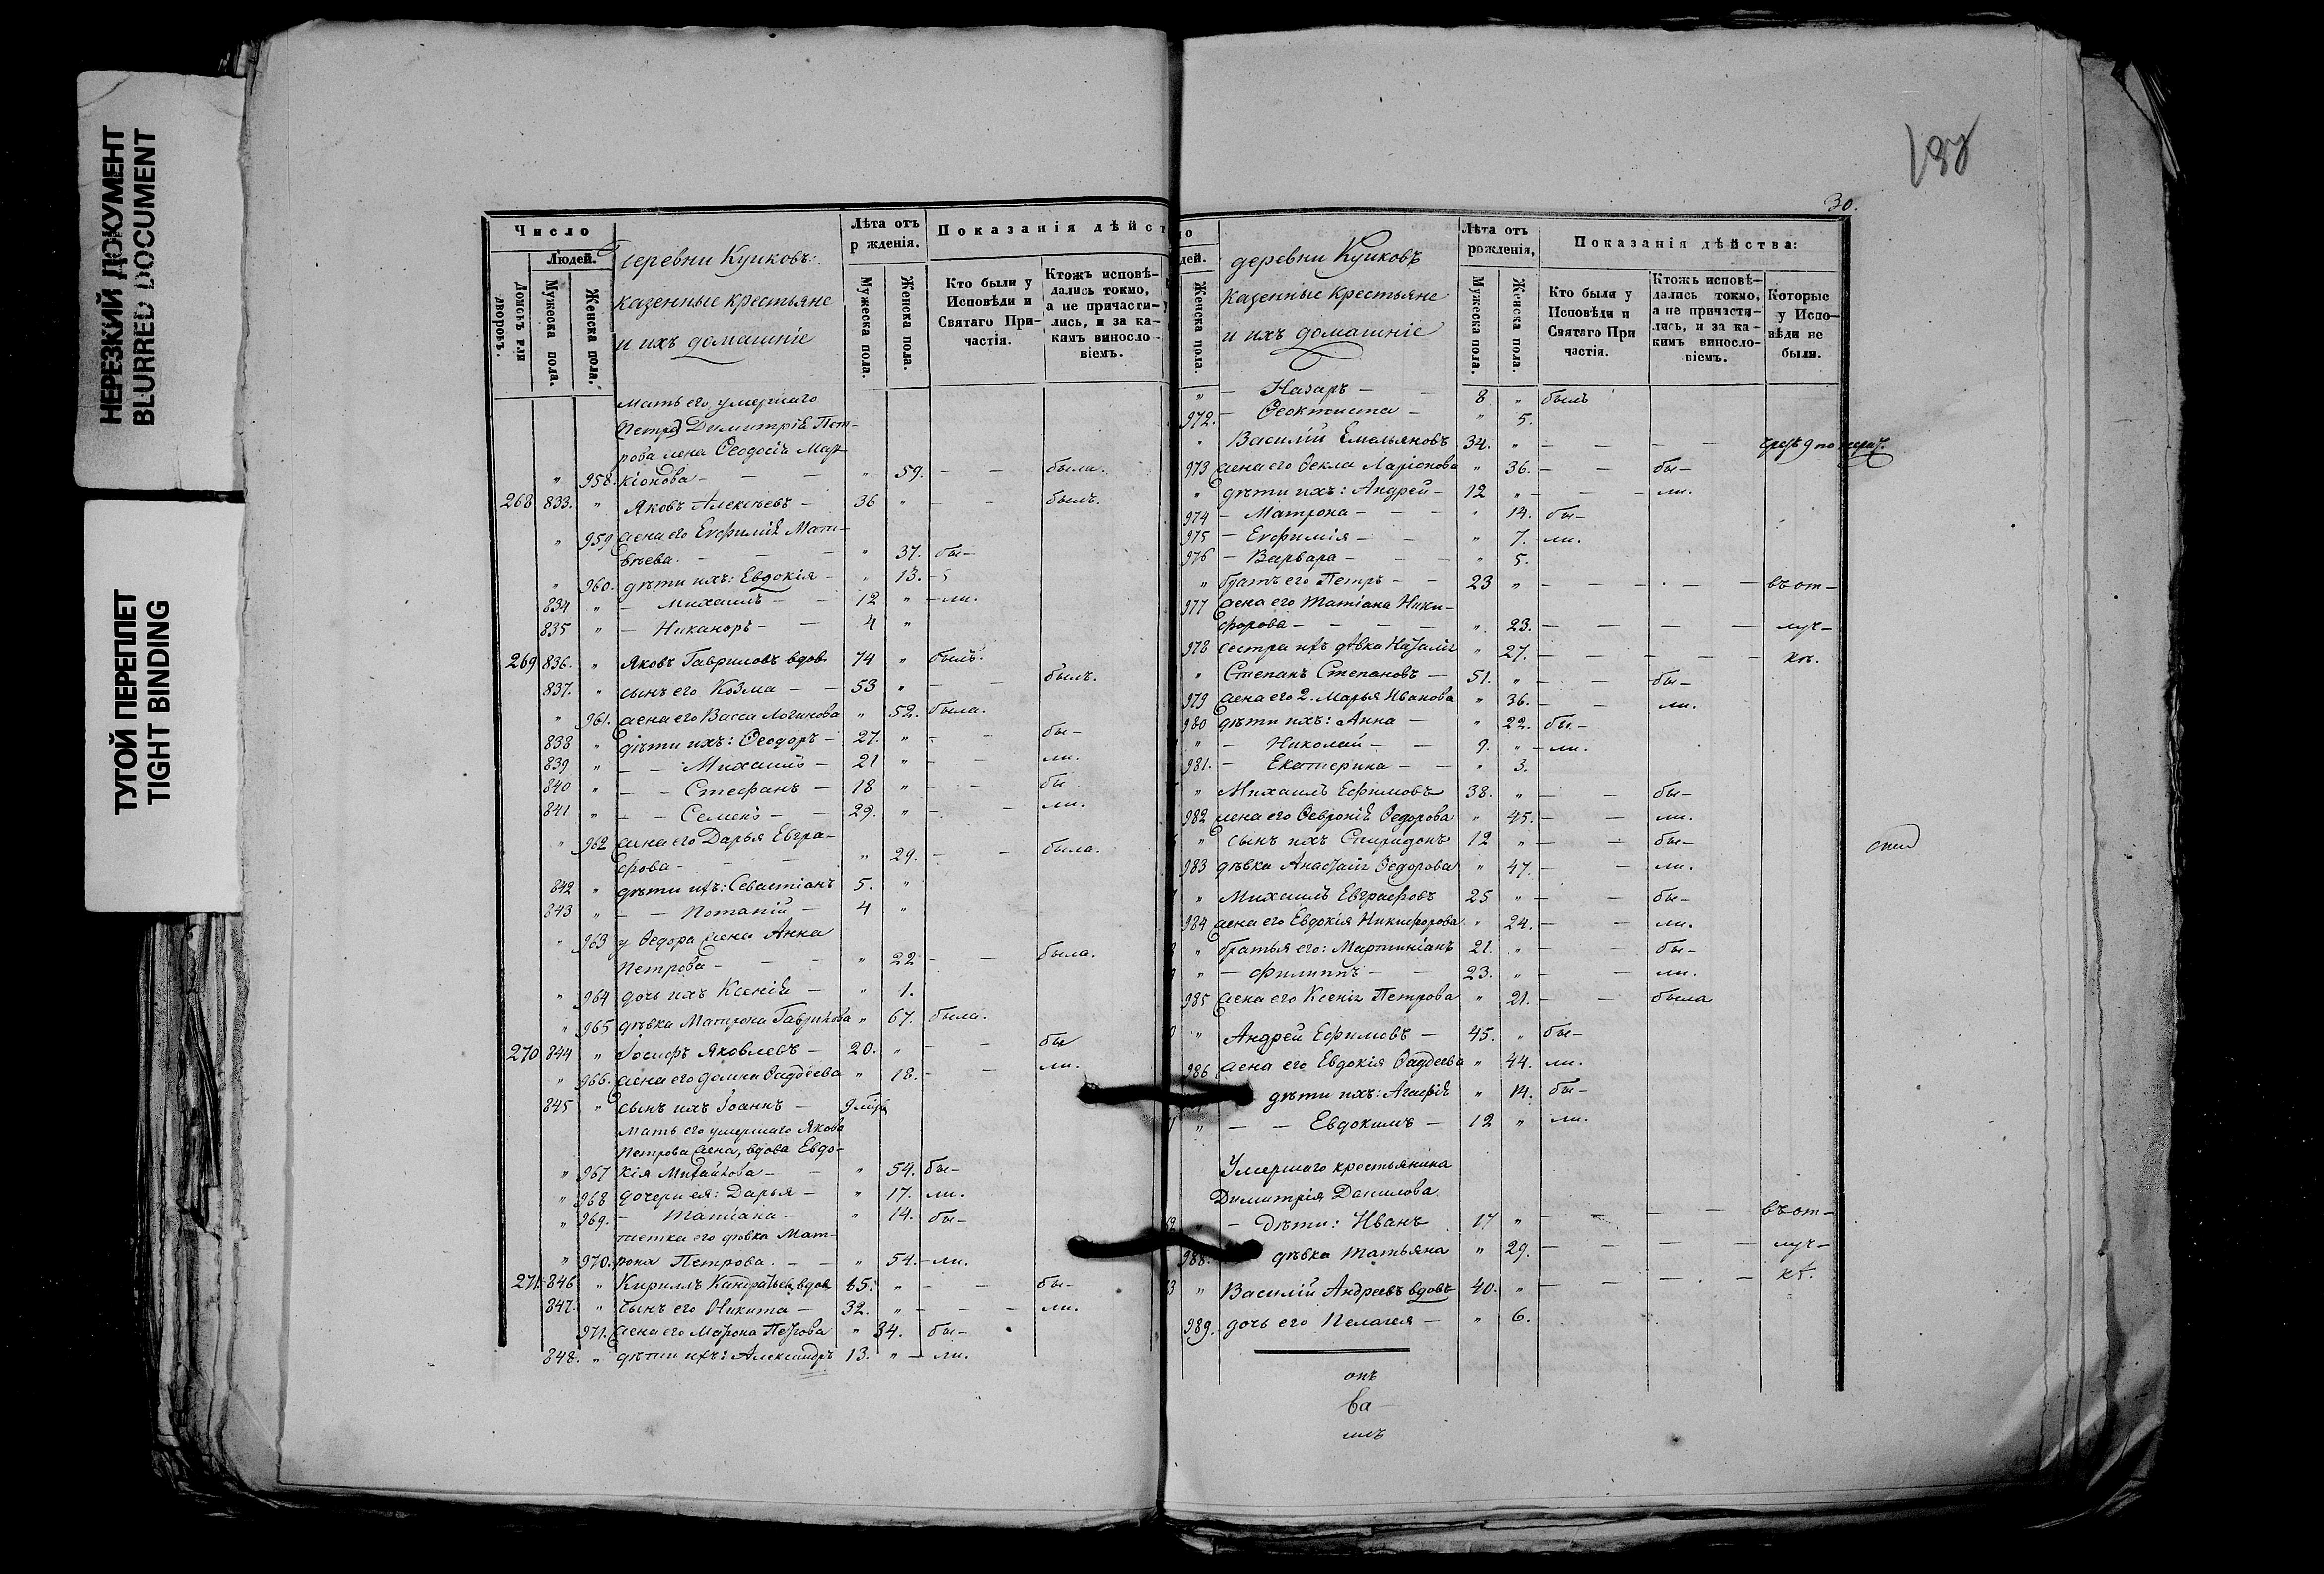 НЕРЕЗКИЙ ДОКУМЕНТ
BLURRED DOCUMENT
ТУГОЙ ПЕРЕПЛЕТ
TIGHT BINDING
Число
Людей.
Домовъ или дворовъ.
Мужеска пола.
Женска пола.
деревни Куиковъ
казенные крестьяне
и ихъ домашніе
Лѣта отъ
р жденія.
Мужеска пола.
Женска пола.
Показанія дѣйст
Кто были у
Исповѣди и
Святаго При-
частія.
Ктожъ исповѣ-
дались токмо,
а не причасти-
лись, и за ка-
кимъ винosло
віемъ.
мать его, умершаго
(Петра) Димитрія Пет-
рова жена Ѳеодосія Мар-
" 958. кіонова - " 59. - - была.
268. 833. " Яковъ Алексѣевъ - 36 " - - былъ.
" 959 жена его Евфимія Мат-
вѣева. - " 37. бы-
" 960. дѣти ихъ: Евдокія - " 13. -
834 " - Михаилъ - 12 " - ли.
835 " - Никаноръ - 4 "
269 836. " Яковъ Гавриловъ вдов. 74 " былъ.
837. " сынъ его Козма - 53 " - - былъ.
" 961. жена его Васса Логинова " 52. была.
838 " дѣти ихъ: Ѳеодоръ - 27. " - - бы-
839 " - - Михаилъ - 21 " - - ли.
840 " - - Стефанъ - 18 " - - бы
841 " - - Семенъ - 29. " - - ли.
" 962 жена его Дарья Евгра-
фова - " 29. - - была.
842 " дѣти ихъ: Севастіанъ 5. "
843 " - - Потапій - 4 "
" 963 у Ѳедора жена Анна
Петрова - " 22 - - была.
" 964 дочь ихъ Ксенія - " 1.
" 965 дѣвка Матрона Гаврилова " 67. была.
270 844 " Іосифъ Яковлевъ - 20. " - - бы
" 966. жена его Домна Ѳаддеева " 18. - - ли.
845 " сынъ ихъ Іоаннъ - 9 мѣс
Мать его умершаго Якова
Петрова жена, вдова Евдо-
" 967 кія Михайлова - " 54. бы-
" 968 дочери ея: Дарья - " 17. ли.
" 969. - Татіана - " 14. бы-
тетка его дѣвка Мат-
" 970. рона Петрова. - " 54. - ли.
271. 846 " Кириллъ Кандратьевъ вдов. 65. " - - бы-
847. " сынъ его Никита - 32. " - - ли.
971. жена его Матрона Петрова " 34. бы-
848. " дѣти ихъ: Александръ 13. " - ли.
30.
ло
дей.
Женска пола.
деревни Куиковъ
казенные крестьяне
и ихъ домашніе
Лѣта отъ
рожденія,
Мужеска пола.
Женска пола.
Показанія дѣйства:
Кто были у
Исповѣди и
Святаго При
частія.
Ктожъ исповѣ-
дались токмо,
а не причасти-
лись, и за ка-
кимъ винosло-
віемъ.
Которые
у Испо-
вѣди не
были.
" - Назаръ - 8 " былъ
972. - Ѳеоктиста - " 5.
" Василій Емельяновъ 34. " - - - -
973 жена его Ѳекла Ларіонова " 36. - - бы-
" дѣти ихъ: Андрей - 12 " - - ли.
974 - Матрона - " 14. бы-
975 - Евфимія - " 7. ли.
976 - Варвара - " 5.
" братъ его Петръ - 23 " - - - - въ от-
977 жена его Татіана Ники-
форова - " 23. - - - - луч-
978 сестра ихъ дѣвка Наталія " 27. - - - - кѣ.
" Степанъ Степановъ - 51. " - - бы-
979 жена его 2. Марья Иванова " 36. - - ли.
980 дѣти ихъ: Анна - " 22. бы-
" - Николай - 9. " - ли.
981. - Екатерина - " 3.
" Михаилъ Ефимовъ 38. " - - бы-
982 жена его Ѳевронія Ѳедорова " 45. - - ли.
" сынъ ихъ Спиридонъ 12 " - - бы-
983 дѣвка Анастасія Ѳедорова " 47. - - ли.
" Михаилъ Евграфовъ 25 " - - бы-
984 жена его Евдокія Никифорова " 24. - - ли.
" братья его: Мартиніанъ 21. " - - бы-
" - Филиппъ - 23. " - - ли.
985 жена его Ксенія Петрова " 21. - - была
" Андрей Ефимовъ - 45. " бы-
986 жена его Евдокія Ѳаддеева " 44. ли.
дѣти ихъ: Агафія " 14. бы-
" - - Евдокимъ - 12 " ли.
Умершаго крестьянина
Димитрія Данилова
" - дѣти: Иванъ 17 " - - - - въ от-
988. дѣвка Татьяна " 29. - - - - луч-
" Василій Андреевъ вдовъ 40. " - - - - кѣ.
989. дочь его Пелагея - " 6.
онъ
ва
илъ